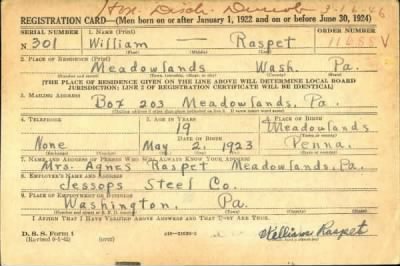 Hon. Disch. Decemb 3-16-46
REGISTRATION CARD—(Men born on or after January 1, 1922 and on or before June 30, 1924)
SERIAL NUMBER 1. NAME (Print) ORDER NUMBER
N 301 William — Raspet 11688 V
(First) (Middle) (Last)
2. PLACE OF RESIDENCE (Print)
Meadowlands Wash Pa.
(Number and street) (Town, township, village, or city) (County) (State)
[THE PLACE OF RESIDENCE GIVEN ON THE LINE ABOVE WILL DETERMINE LOCAL BOARD
JURISDICTION; LINE 2 OF REGISTRATION CERTIFICATE WILL BE IDENTICAL]
3. MAILING ADDRESS
Box 203 Meadowlands, Pa.
4. TELEPHONE 5. AGE IN YEARS 6. PLACE OF BIRTH
19 Meadowlands
DATE OF BIRTH
None May 2, 1923 Penna.
7. NAME AND ADDRESS OF PERSON WHO WILL ALWAYS KNOW YOUR ADDRESS
Mrs. Agnes Raspet Meadowlands, Pa.
8. EMPLOYER'S NAME AND ADDRESS
Jessops Steel Co.
9. PLACE OF EMPLOYMENT OR BUSINESS
Washington, Pa.
(Number and street or R. F. D. number) (Town) (County) (State)
I AFFIRM THAT I HAVE VERIFIED ABOVE ANSWERS AND THAT THEY ARE TRUE.
D. S. S. Form 1
(Revised 9-5-42) (over) William Raspet